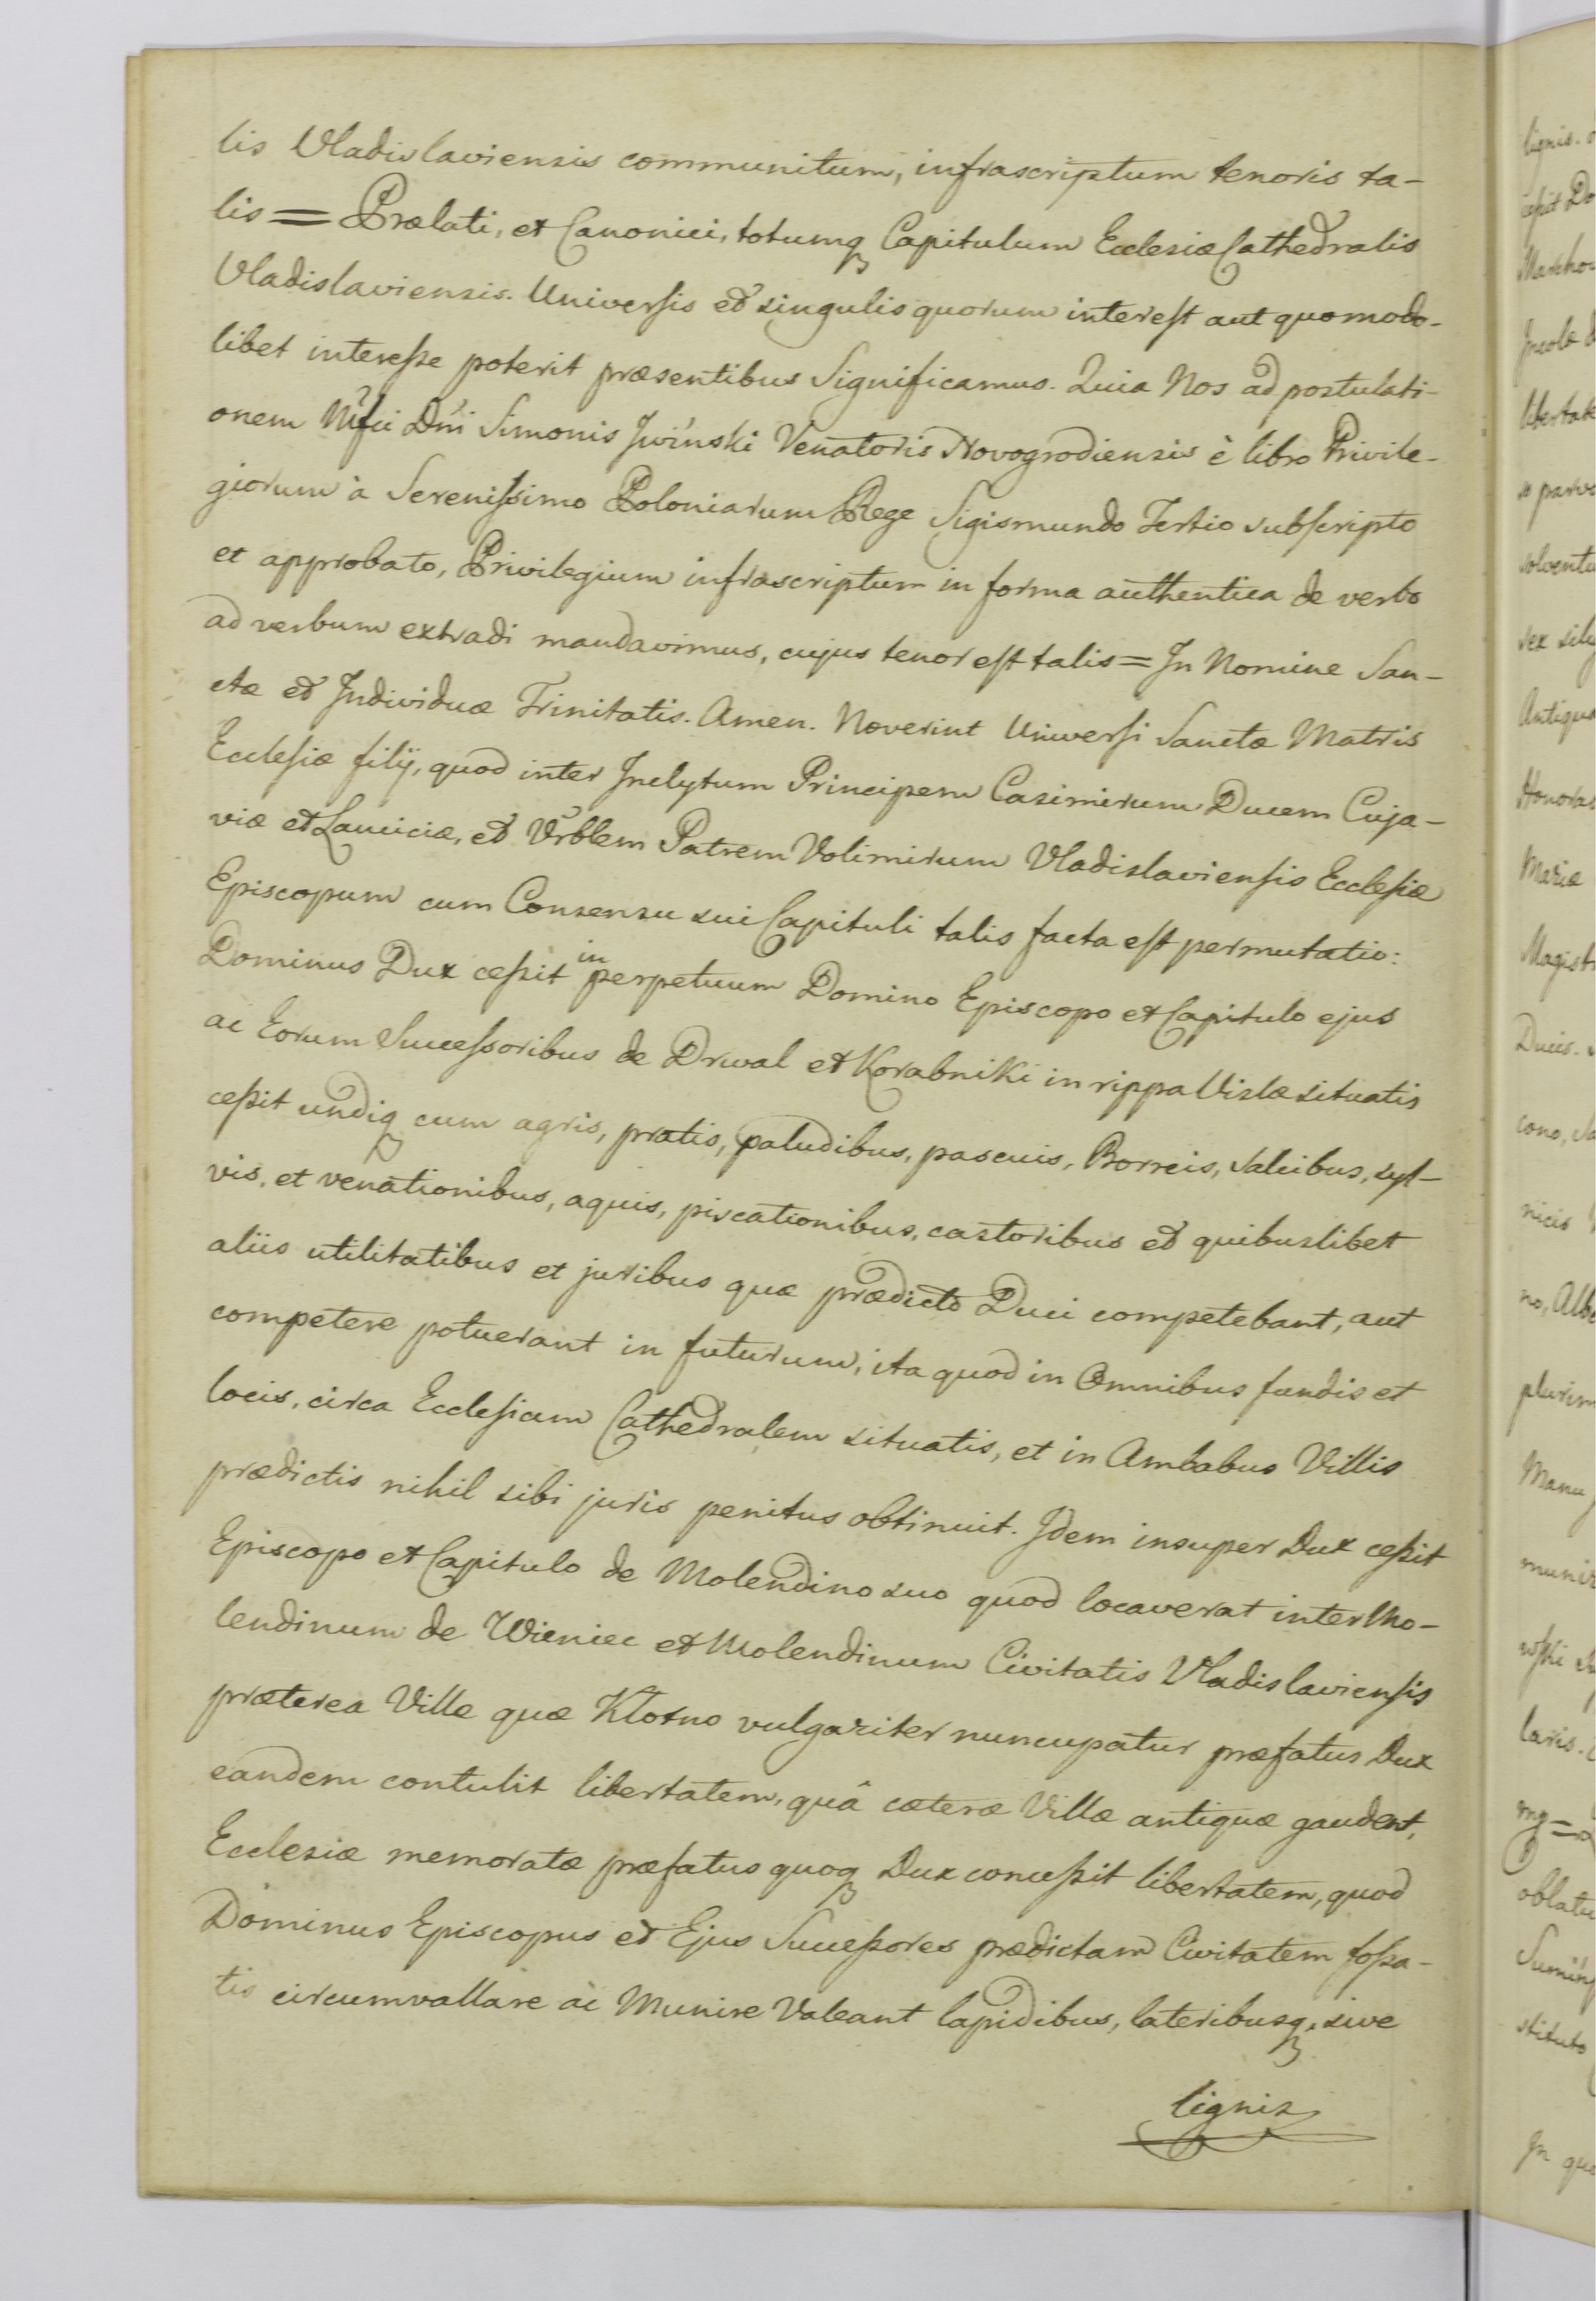 lis Vladislaviensis communitum, infrascriptum tenoris ta-
lis = Prælati, et Canonici, totumq Capitulum Ecclesiæ Cathedralis
Vladislaviensis. Universis et singulis quorum interest aut quomodo-
libet interesse poterit præsentibus Significamus. Quia Nos ad postulati-
onem Mfci Dni Simonis Jwinski Venatoris Novogrodiensis è libro Privile-
giorum à Serenissimo Poloniarum Rege Sigismundo Tertio subscripto
et approbato, Privilegium infrascriptum in forma authentica de verbo
ad verbum extradi mandavimus, cujus tenor est talis = In Nomine San-
ctæ et Individuæ Trinitatis. Amen. Noverint Universi Sanctæ Matris
Ecclesiæ filij, quod inter Inclytum Principem Casimirum Ducem Cuja-
viæ et Lanciciæ, et Vrblem Patrem Volimirum Vladislaviensis Ecclesiæ
Episcopum cum Consensu sui Capituli talis facta est permutatio:
Dominus Dux cessit in perpetuum Domino Episcopo et Capitulo ejus
ac Eorum Successoribus de Drwal et Korabniki in rippa Vislæ situatis
cessit undiq cum agris, pratis, paludibus, pascuis, Borreis, salicibus, syl-
vis, et venationibus, aquis, piscationibus, castoribus et quibuslibet
aliis utilitatibus et juribus quæ prædicto Duci competebant, aut
competere potuerant in futurum, ita quod in Omnibus fundis et
locis, circa Ecclesiam Cathedralem situatis, et in Ambabus Villis
prædictis nihil sibi juris penitus obtinuit. Idem insuper Dux cessit
Episcopo et Capitulo de Molendino suo quod locaverat inter Mo-
lendinum de Wieniec et Molendinum Civitatis Vladislaviensis
præterea Ville quæ Klotno vulgariter nuncupatur præfatus Dux
eandem contulit libertatem, quâ cæteræ Villæ antiquæ gaudent,
Ecclesiæ memoratæ præfatus quoq Dux concessit libertatem, quod
Dominus Episcopus et Ejus Successores prædictam Civitatem fossa-
tis circumvallare ac Munire Valeant lapidibus, lateribusq, sive
lignis